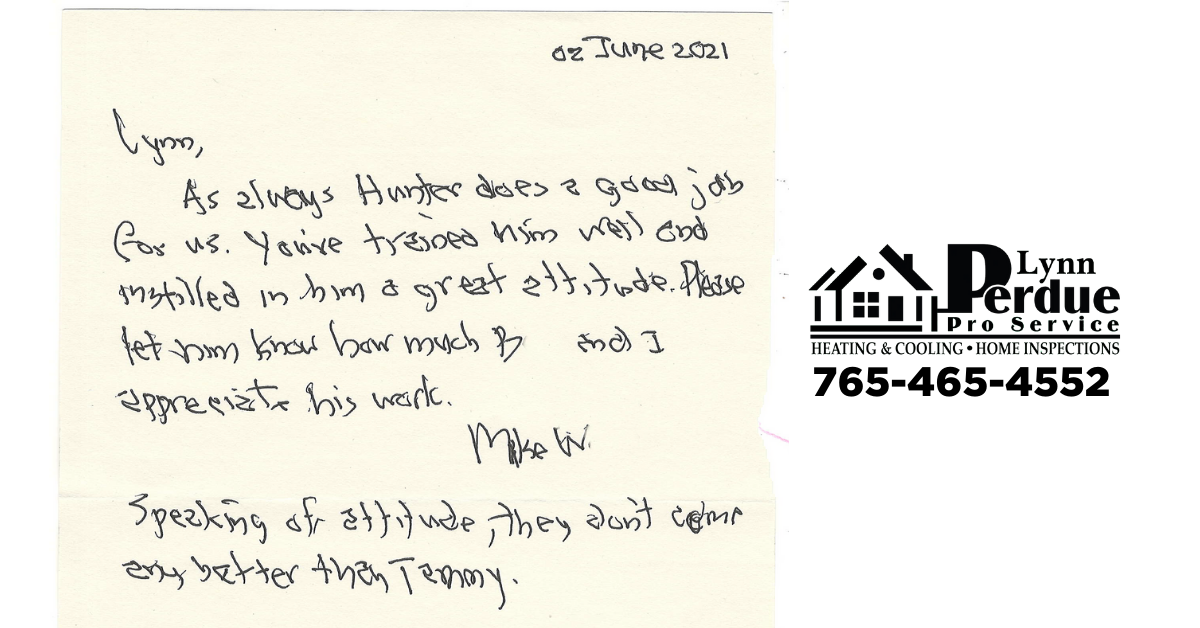 02 June 2021
Lynn,
As always Hunter does a good job
for us. You've trained him well and
installed in him a great attitude. Please
let him know how much B and I
appreciate his work.
Mike W.
Speaking of attitude, they don't come
any better than Tammy.
Lynn
Perdue
Pro Service
HEATING & COOLING • HOME INSPECTIONS
765-465-4552